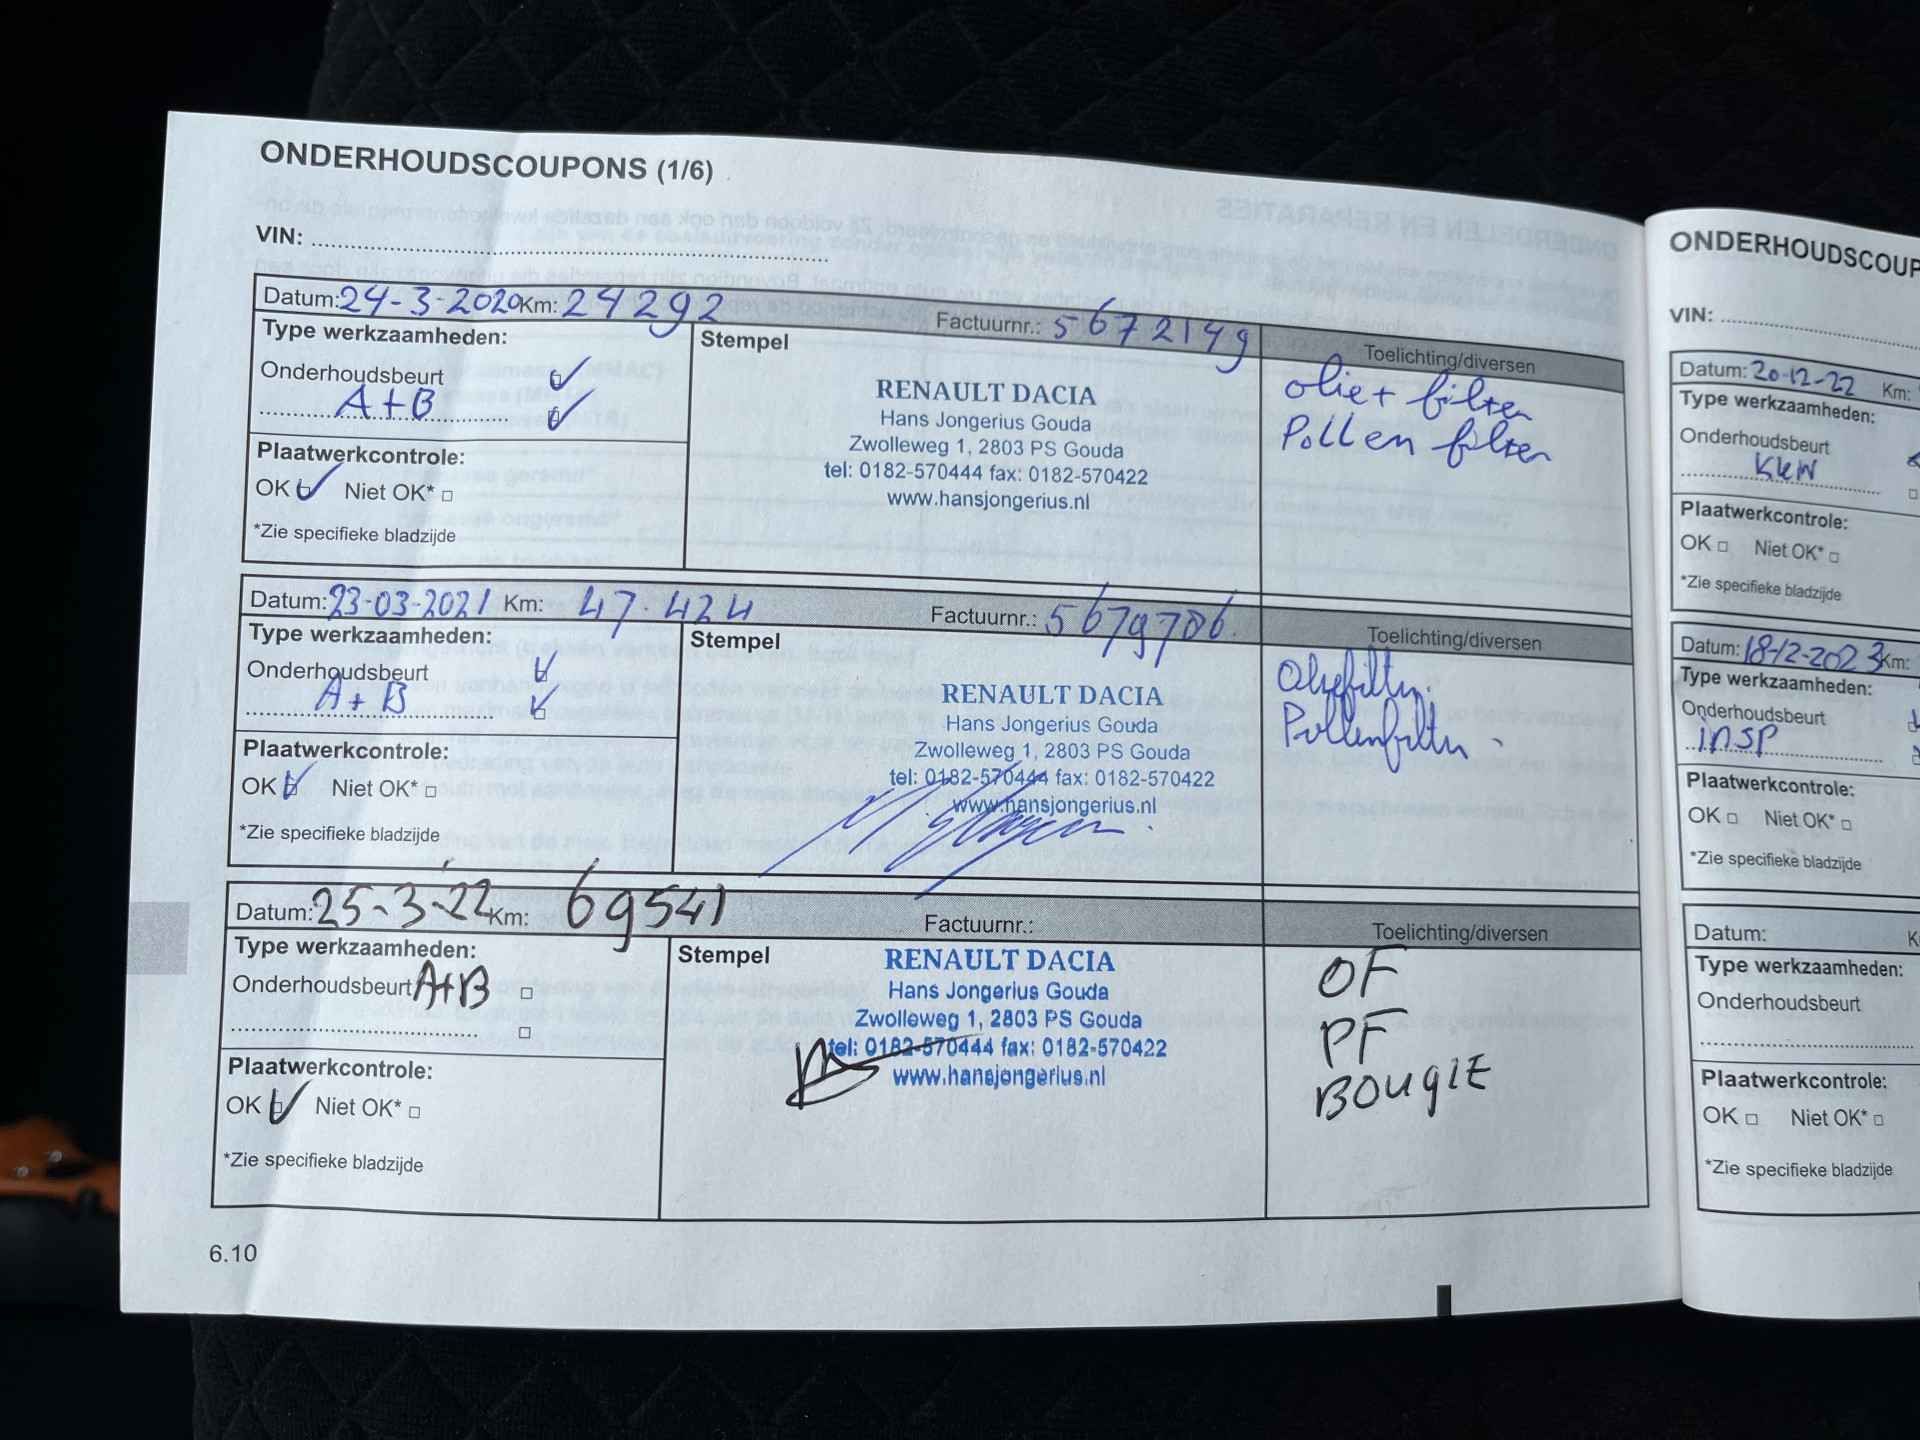 ONDERHOUDSCOUPONS (1/6)
VIN:
Datum: 24-3-2020 Km: 24292 Factuurnr.: 5672149
Type werkzaamheden:
Stempel
Toelichting/diversen
Onderhoudsbeurt
A+B
Plaatwerkcontrole:
OK Niet OK*
*Zie specifieke bladzijde
RENAULT DACIA
Hans Jongerius Gouda
Zwolleweg 1, 2803 PS Gouda
tel: 0182-570444 fax: 0182-570422
www.hansjongerius.nl
olie+ filter
Pollen filter
Datum: 23-03-2021 Km: 47.424 Factuurnr.: 5679706.
Type werkzaamheden:
Stempel
Toelichting/diversen
Onderhoudsbeurt
A+B
Plaatwerkcontrole:
OK Niet OK*
*Zie specifieke bladzijde
RENAULT DACIA
Hans Jongerius Gouda
Zwolleweg 1, 2803 PS Gouda
tel: 0182-570444 fax: 0182-570422
www.hansjongerius.nl
Oliefilter.
Pollenfilter.
Datum: 25-3-22 Km: 69541 Factuurnr.:
Type werkzaamheden:
Stempel
Toelichting/diversen
Onderhoudsbeurt A+B
Plaatwerkcontrole:
OK Niet OK*
*Zie specifieke bladzijde
RENAULT DACIA
Hans Jongerius Gouda
Zwolleweg 1, 2803 PS Gouda
tel: 0182-570444 fax: 0182-570422
www.hansjongerius.nl
OF
PF
BOUGIE
6.10
ONDERHOUDSCOUP
VIN:
Datum: 20-12-22 Km:
Type werkzaamheden:
Onderhoudsbeurt
Plaatwerkcontrole:
OK Niet OK*
*Zie specifieke bladzijde
Datum: 18-12-2023 Km:
Type werkzaamheden:
Onderhoudsbeurt
insp
Plaatwerkcontrole:
OK Niet OK*
*Zie specifieke bladzijde
Datum:
Type werkzaamheden:
Onderhoudsbeurt
Plaatwerkcontrole:
OK Niet OK*
*Zie specifieke bladzijde